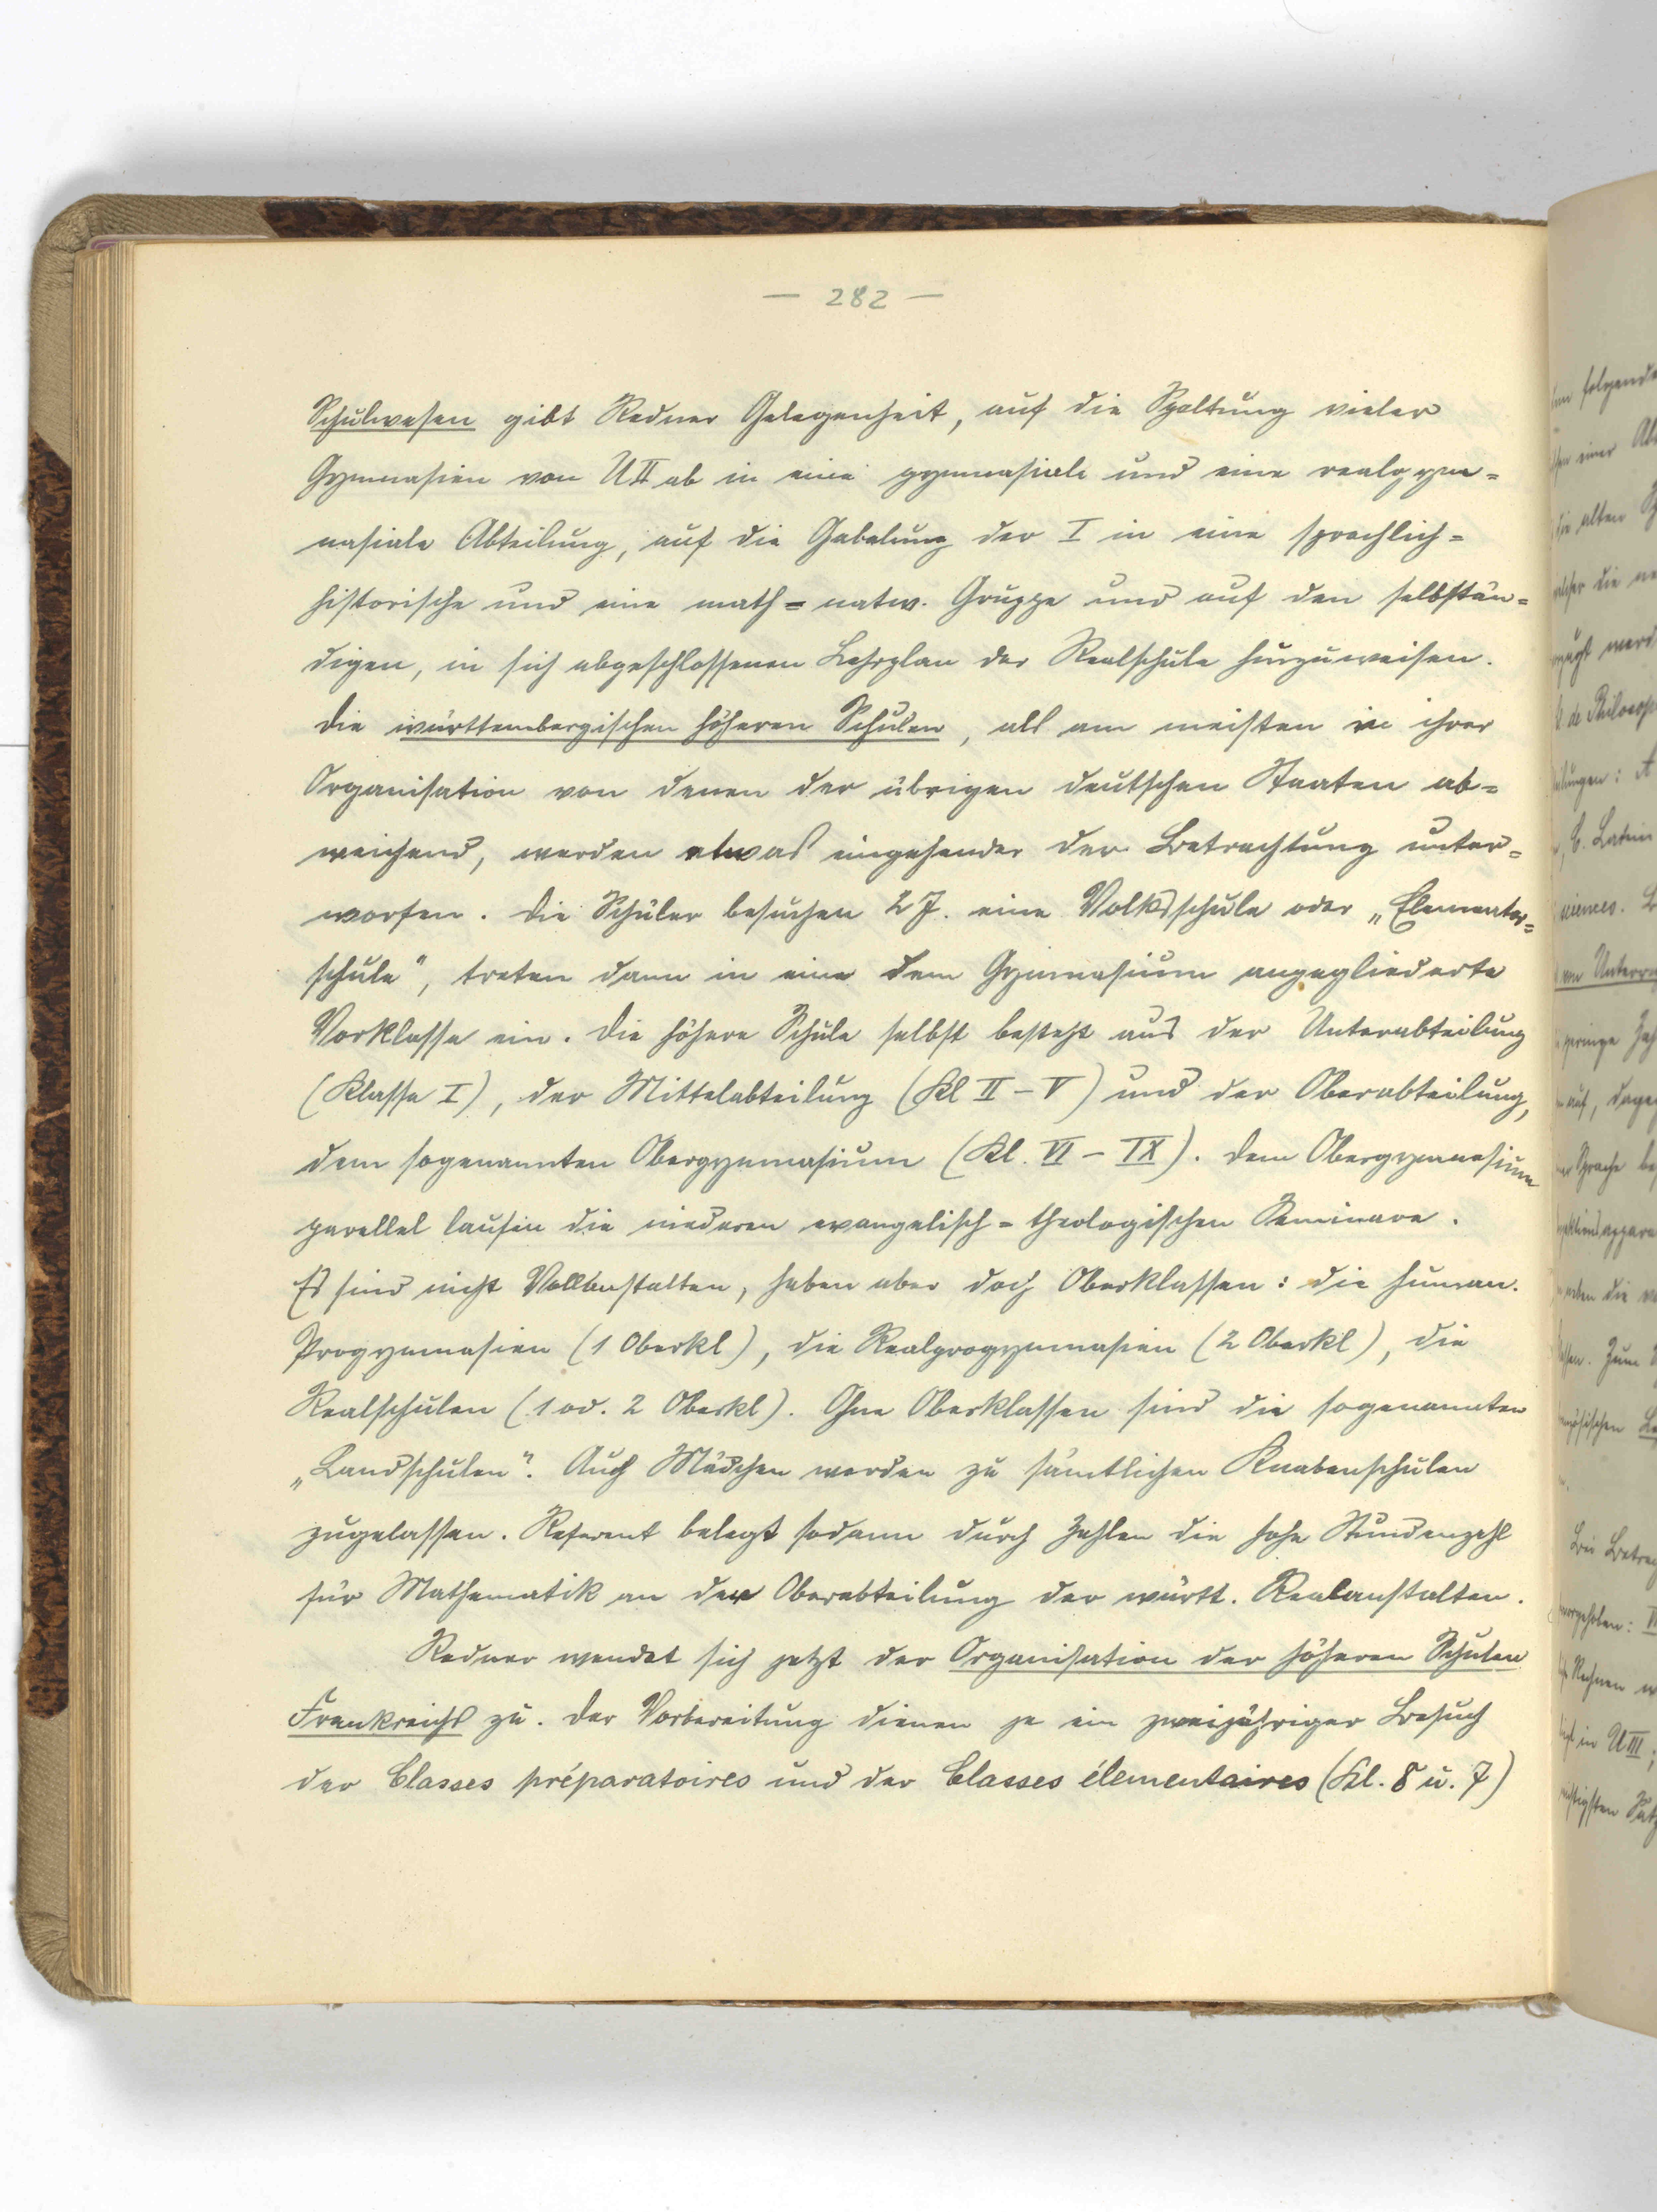 — 282 —
Schulwesen gibt Redner Gelegenheit, auf die Spaltung vieler
Gymnasien von U II ab in eine gymnasiale und eine realgym=
nasiale Abteilung, auf die Gabelung der I in eine sprachlich=
historische und eine math=natw. Gruppe und auf den selbstän=
digen, in sich abgeschlossenen Lehrplan der Realschule hinzuweisen.
Die württembergischen höheren Schulen, als am meisten in ihrer
Organisation von denen der übrigen deutschen Staaten ab=
weichend, werden etwas eingehender der Betrachtung unter=
worfen. Die Schüler besuchen 2 J. eine Volksschule oder „Elementar=
schule", treten dann in eine dem Gymnasium angegliederte
Vorklasse ein. Die höhere Schule selbst besteht aus der Unterabteilung
(Klasse I), der Mittelabteilung (Kl II – V) und der Oberabteilung,
dem sogenannten Obergymnasium (Kl. VI – IX). Dem Obergymnasium
parallel laufen die niederen evangelisch=theologischen Seminare.
Es sind nicht Vollanstalten, haben aber doch Oberklassen: die human.
Progymnasien (1 Oberkl), die Realprogymnasien (2 Oberkl), die
Realschulen (1 od. 2 Oberkl). Ohne Oberklassen sind die sogenannten
„Landschulen". Auch Mädchen werden zu sämtlichen Knabenschulen
zugelassen. Referent belegt sodann durch Zahlen die hohe Stundenzahl
für Mathematik an der Oberabteilung der württ. Realanstalten.
Redner wendet sich jetzt der Organisation der höheren Schulen
Frankreichs zu. Der Vorbereitung dienen je ein zweijähriger Besuch
der Classes préparatoires und der Classes élementaires (Kl. 8 u. 7)